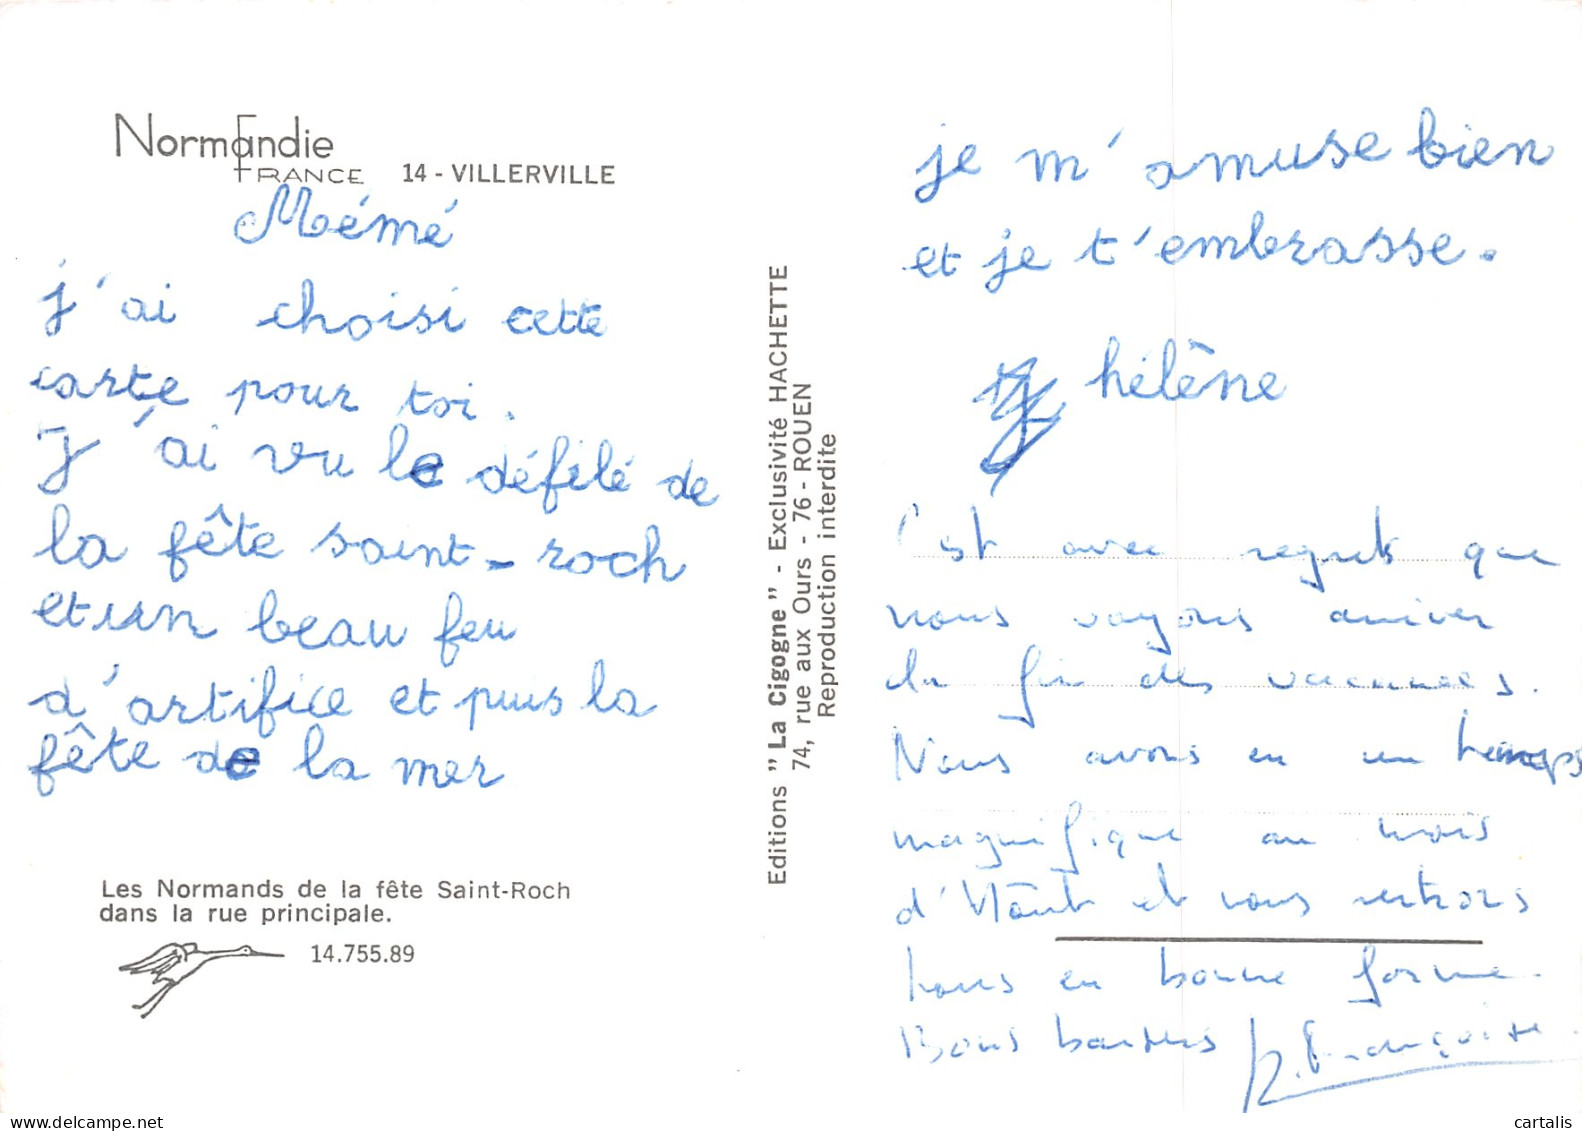 Normandie
FRANCE 14 - VILLERVILLE
Mémé
j'ai choisi cette
carte pour toi.
J'ai vu le défilé de
la fête saint-roch
et un beau feu
d'artifice et puis la
fête de la mer
Les Normands de la fête Saint-Roch
dans la rue principale.
14.755.89
Editions "La Cigogne" - Exclusivité HACHETTE
74, rue aux Ours - 76 - ROUEN
Reproduction interdite
je m'amuse bien
et je t'embrasse.
hélène
C'est avec regrets que
nous voyons arriver
la fin des vacances.
Nous avons eu un temps
magnifique au mois
d'Août et nous rentrons
tous en bonne forme.
Bons baisers Françoise
cartalis